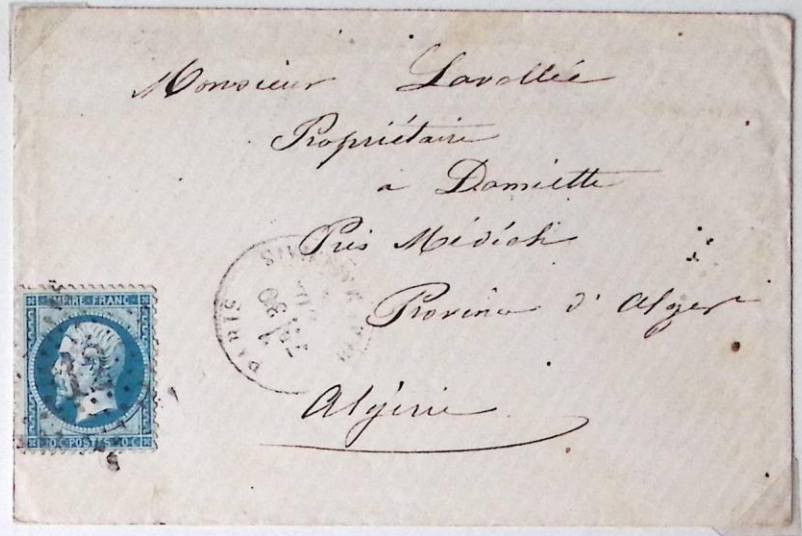 Monsieur Lavallée
Propriétaire
a Damiette
Près Médéah
Province d'Alger
Algérie
PARIS
EMPIRE FRANC
20 C POSTES 20 C